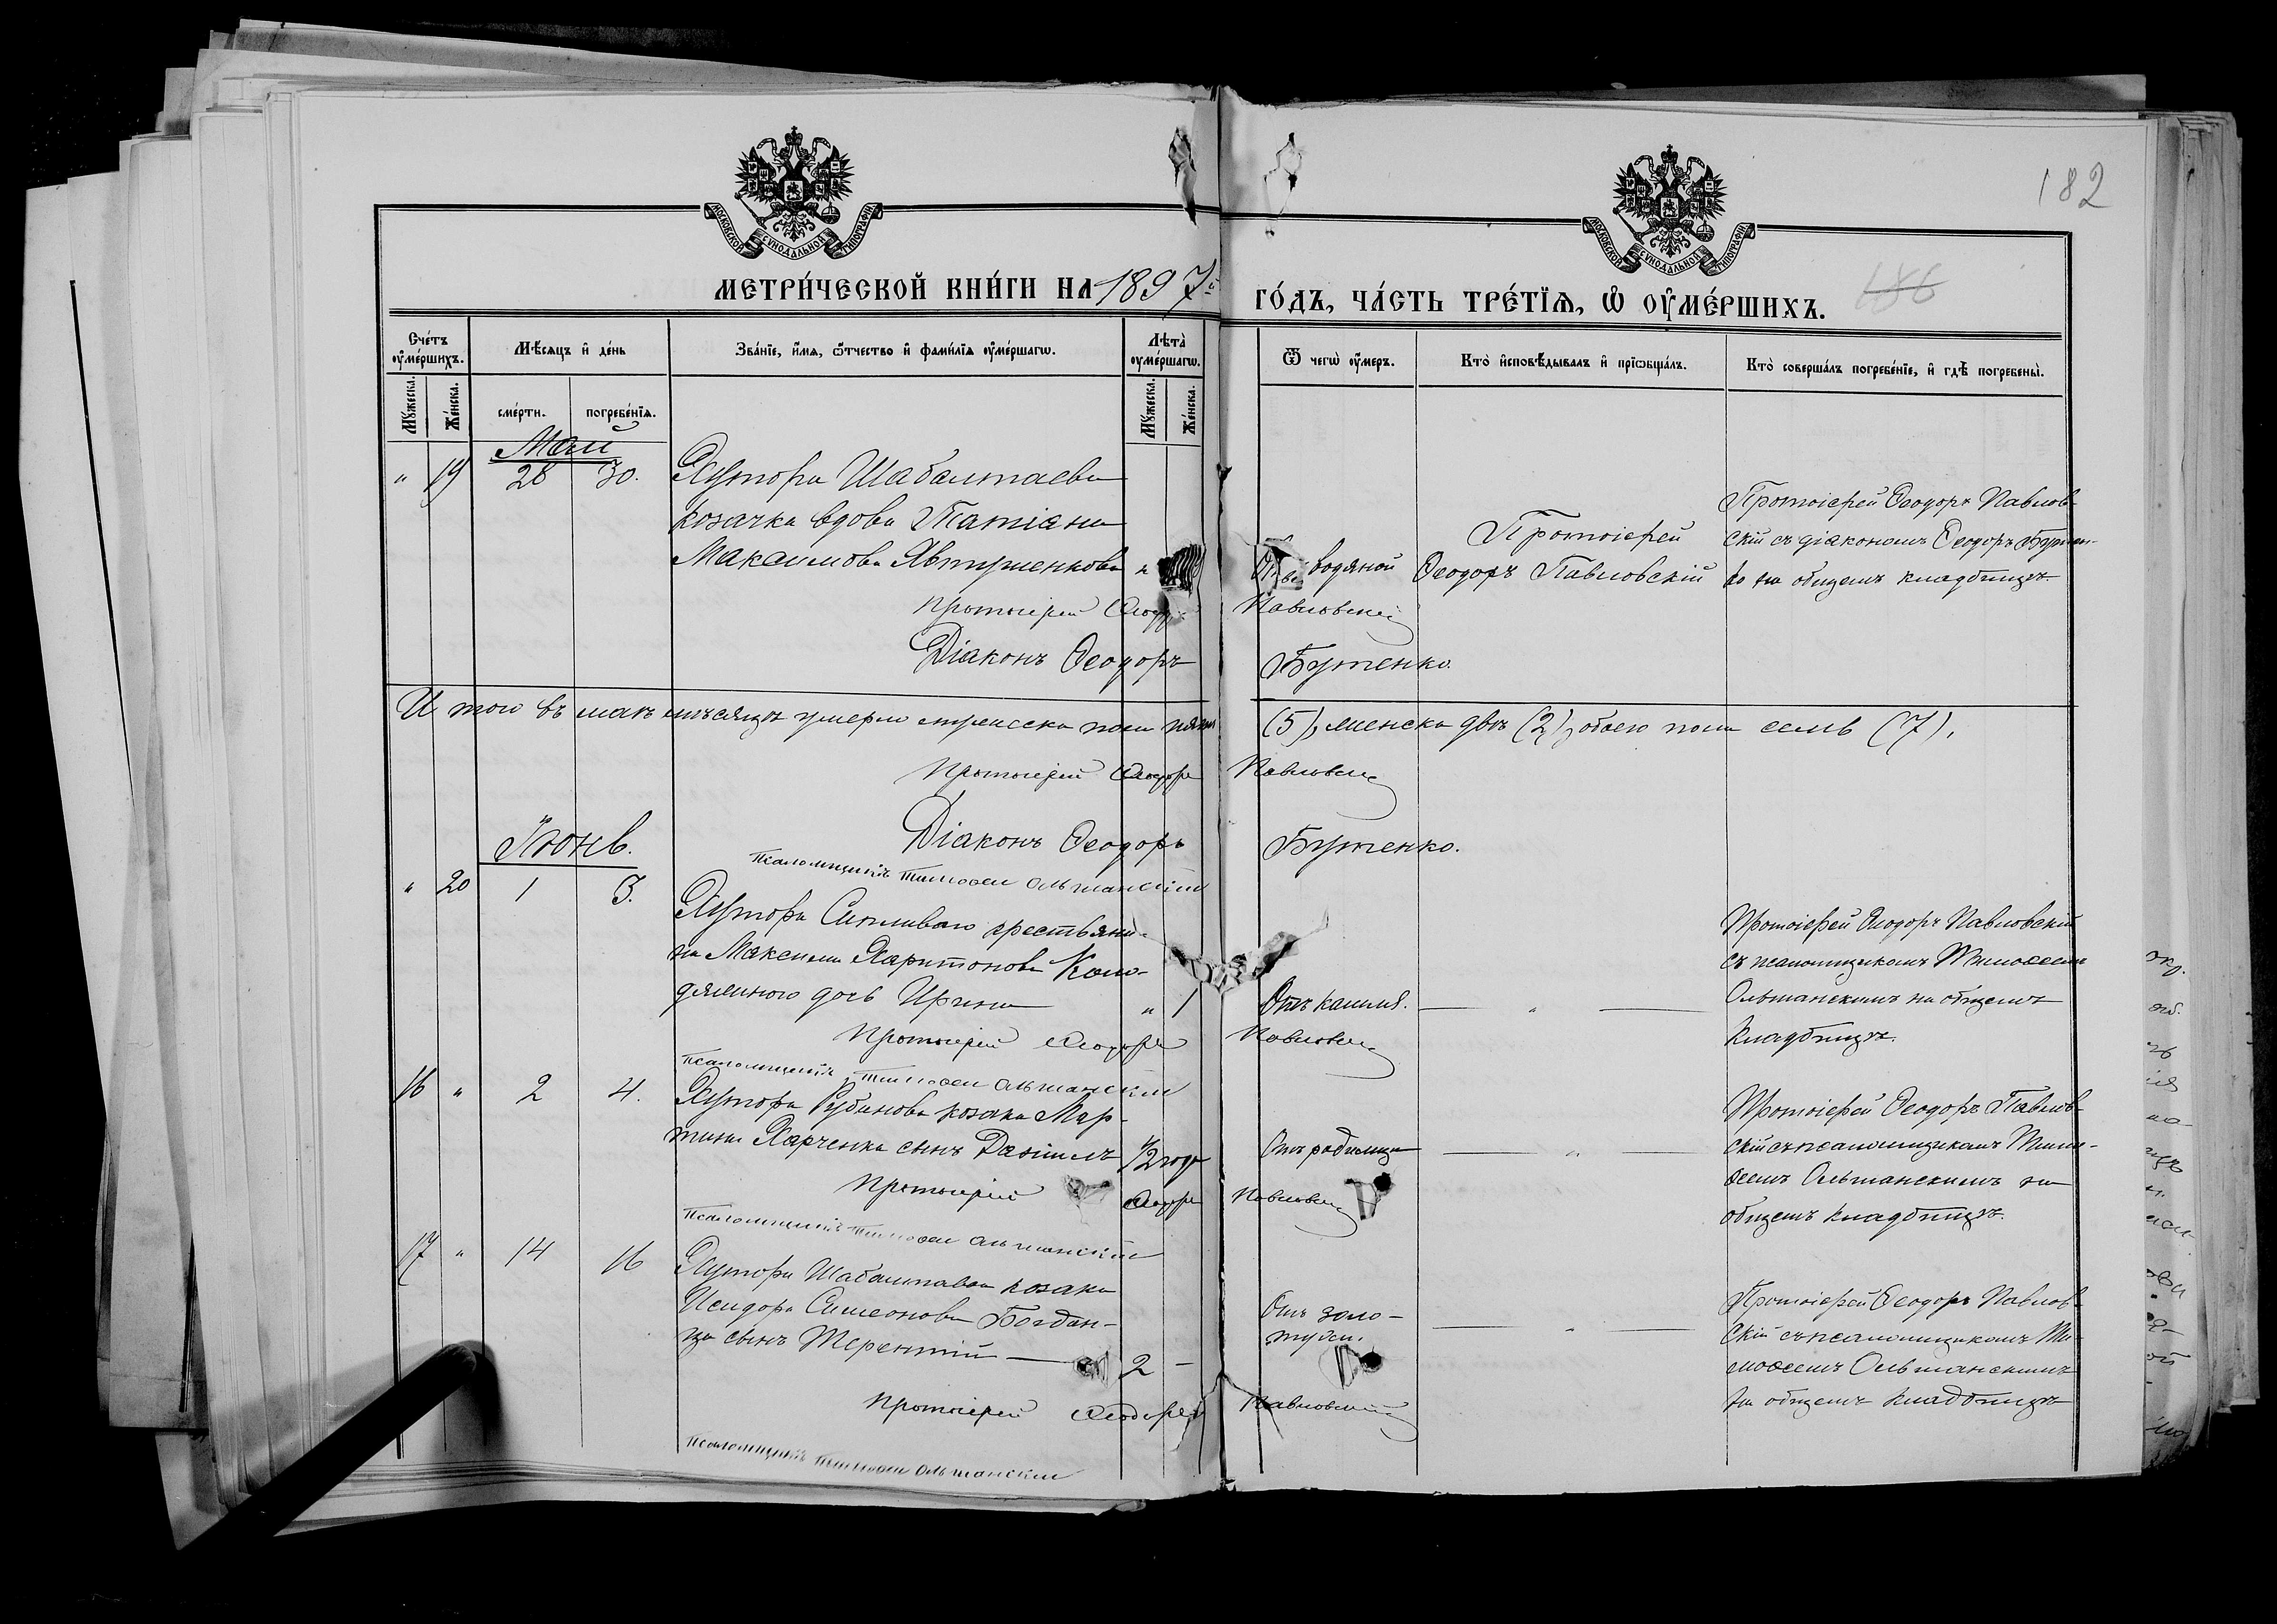 182
МОСКОВСКОЙ СУНОДАЛЬНОЙ ТИПОГРАФІИ
МОСКОВСКОЙ СУНОДАЛЬНОЙ ТИПОГРАФІИ
МЕТРИ́ЧЕСКОЙ КНИ́ГИ НА 1897й ГО́ДЪ, ЧА́СТЬ ТРЕ́ТІѦ, Ѡ҆ ОУ҆МЕ́РШИХЪ.
186
Сче́тъ оу҆ме́ршихъ.
Мѣ́сяцъ и҆ де́нь
Зва́нїе, и҆́мѧ, ѻ҆́тчество и҆ фами́лїѧ оу҆ме́ршагѡ.
Лѣта̀ оу҆ме́ршагѡ.
Ѿ чегѡ̀ оу҆́меръ.
Кто̀ и҆сповѣ́дывалъ и҆ прїѡбща́лъ.
Кто̀ соверша́лъ погребе́нїе, и҆ гдѣ̀ погребены̀.
Мꙋ́жеска.
Же́нска.
сме́рти.
погребе́нїѧ.
Мꙋ́жеска.
Же́нска.
Май
" 19 28 30. Хутора Шабалтаева
козачка вдова Татіана
Максимова Явтушенкова "
водяной
Протоіерей
Ѳеодоръ Павловскій
Протоіерей Ѳеодоръ Павлов-
скій съ діакономъ Ѳеодоръ Бутен-
ко на общемъ кладбищѣ.
Протоіерей Ѳеодоръ Павловскій
Діаконъ Ѳеодоръ Бутенко.
Итого въ маѣ мѣсяцѣ умерло мужеска пола пять (5), женска двѣ (2), обоего пола семь (7).
Протоіерей Ѳеодоръ Павловскій
Діаконъ Ѳеодоръ Бутенко.
Псаломщикъ Тимоѳей Ольшанскій
Іюнь.
" 20 1 3. Хутора крестьяни-
на Максима Харитонова Коло-
дяжного дочь Ирина " 1
Отъ кашля. "
Протоіерей Ѳеодоръ Павловскій
съ псаломщикомъ Тимоѳеемъ
Ольшанскимъ на общемъ
кладбищѣ.
Протоіерей Ѳеодоръ Павловскій
Псаломщикъ Тимоѳей Ольшанскій
16 " 2 4. Хутора Рубанова козака Мар-
тина Харченка сынъ Даніилъ 1/2 года
Отъ родимца "
Протоіерей Ѳеодоръ Павлов-
скій съ псаломщикомъ Тимо-
ѳеемъ Ольшанскимъ на
общемъ кладбищѣ.
Протоіерей Ѳеодоръ Павловскій
Псаломщикъ Тимоѳей Ольшанскій
17 " 14 16 Хутора Шабалтаева козака
Исидора Симеонова Богдан-
ца сынъ Терентій 2 -
Отъ золо-
тухи. "
Протоіерей Ѳеодоръ Павлов-
скій съ псаломщикомъ Ти-
моѳеемъ Ольшанскимъ
на общемъ кладбищѣ
Протоіерей Ѳеодоръ Павловскій
Псаломщикъ Тимоѳей Ольшанскій